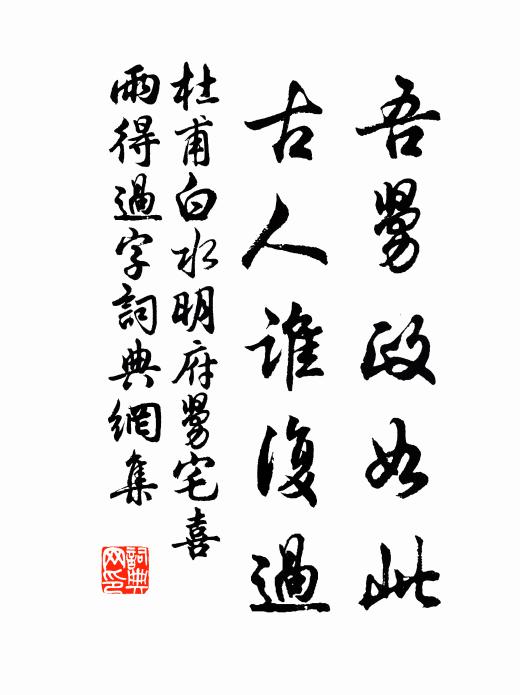 吾舅政如此
古人誰復過
杜甫白水明府舅宅喜
雨得過字詞典網集
詞典網印